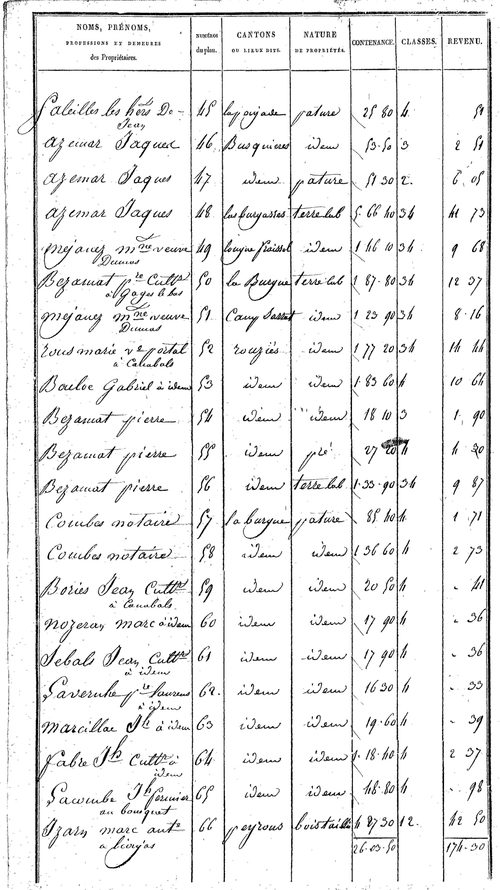 NOMS, PRÉNOMS, PROFESSIONS ET DEMEURES des Propriétaires. | NUMÉROS du plan. | CANTONS OU LIEUX DITS. | NATURE DE PROPRIÉTÉS. | CONTENANCE. | CLASSES. | REVENU.
Galeilles les hers De Jean 45 lapoujade pature 25 80 4 51
azemar Jaques 46 Busquieres idem 53·50 3 2 51
azemar Jaques 47 idem pature 51 30 2 6 05
azemar Jaques 48 las Burgasses terre lab 5 66 40 34 41 73
mejanez mne veuve Dumas 49 idem 1 46 10 34 9 68
Bezamat pre Cultr à Gages le bas 50 la Burgue terre lab 1 87·80 34 12 37
mejanez mne veuve Dumas 51 Camp idem 1 23 90 34 8·16
rous marie ve portal à Canabols 52 rouziés idem 1 77 20 34 14 44
Bouloc Gabriel à idem 53 idem idem 1·83 60 4 10 64
Bezamat pierre 54 idem idem 18 10 3 1 90
Bezamat pierre 55 idem pré 27 20 4 4 30
Bezamat pierre 56 idem terre lab 1·33·90 34 9 87
Combes notaire 57 la burgue pature 85 40 4 1 71
Combes notaire 58 idem idem 1 36 60 4 2 73
Bories Jean Cultr à Canabols 59 idem idem 20 50 4 41
nozeran marc à idem 60 idem idem 17 90 4 36
Sebals Jean Cultr à idem 61 idem idem 17 90 4 36
Lavernhe pre Laurens à idem 62 idem idem 16 30 4 33
marcillac Jh à idem 63 idem idem 19·60 4 39
fabre Jh Cultr à idem 64 idem idem 1·18·40 4 2 37
Lacombe Jh fermier au bousquet 65 idem idem 48·80 4 98
Izarn marc ante à lioujas 66 peyrous bois taillis 4 87 30 12 42 50
26·03·50 174·30